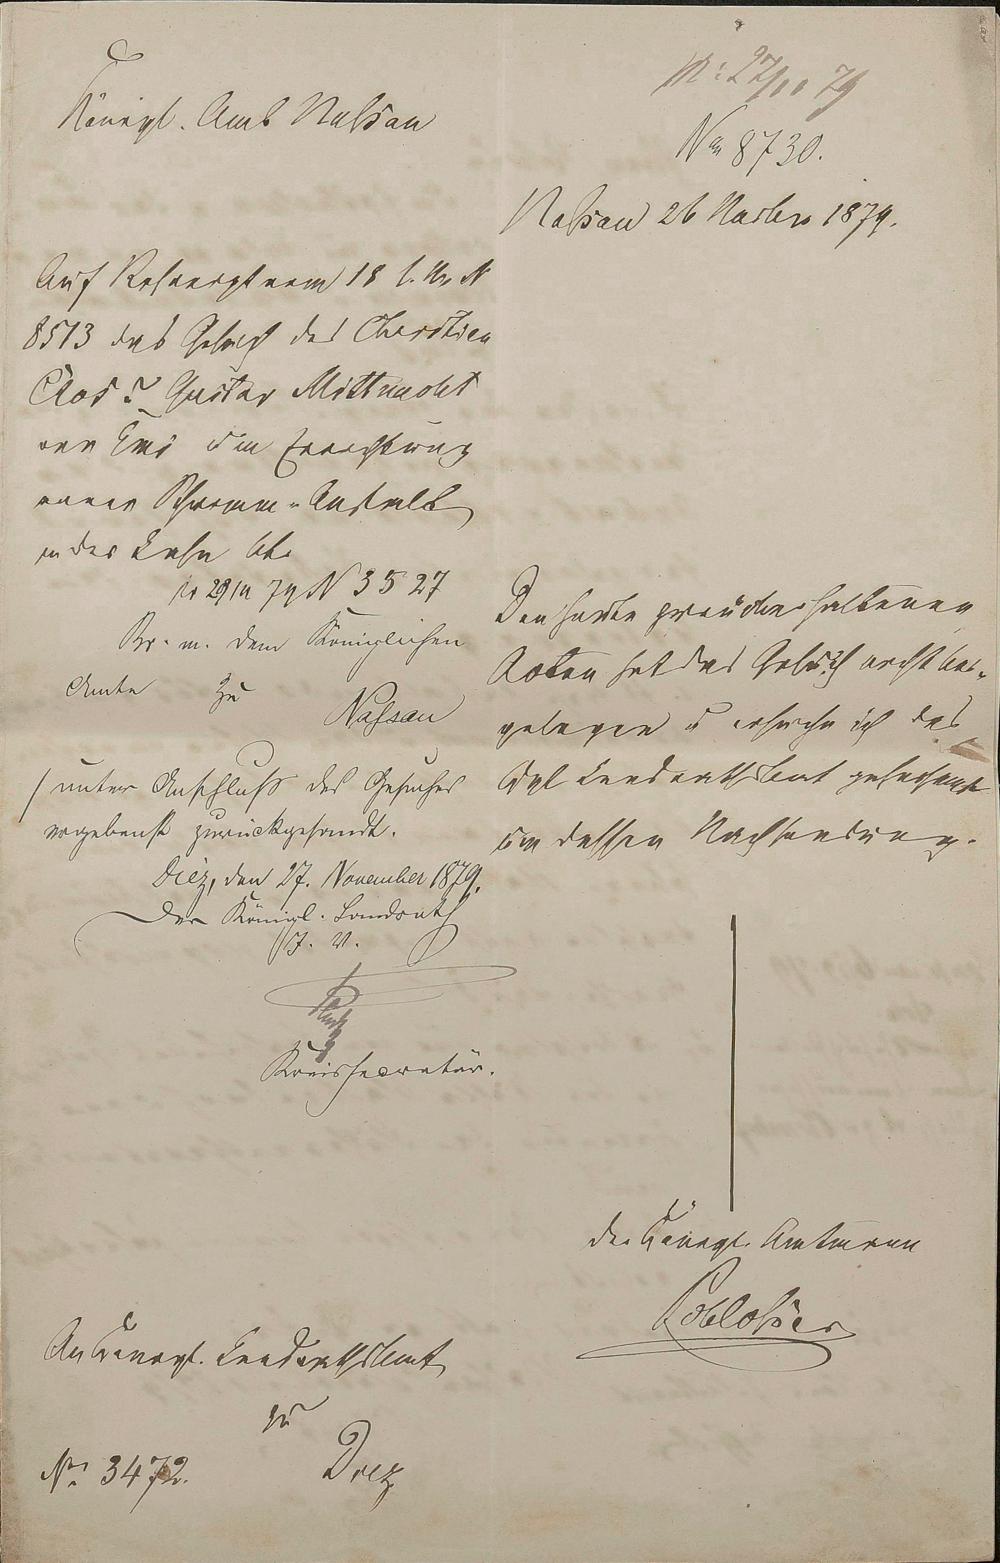 Königl. Amt Nassau
27/11 79
No 8730.
Nassau 26 Novbr 1879.
Auf Rescript vom 18 l. M. N
8513 das Gesuch des Christian
Clos u. Gustav Mittnacht
von Ems um Errichtung
einer Schwimm-Anstalt
in der Lahn btr.
pr 29/11 79 N 3527
Br. m. dem Königlichen
Amte zu
Nassau
unter Anschluß des Gesuches
ergebenst zurückgesandt.
Diez, den 27. November 1879.
Der Königl. Landrath
J. V.
Kreissecretär.
Den heute zurückerhaltenen
Acten hat das Gesuch nicht bei-
gelegen u ersuche ich das
Kgl Landrathsamt gehorsamst
um dessen Nachsendung.
Der Königl. Amtmann
An Königl. Landrathsamt
zu
Diez
No 3472.